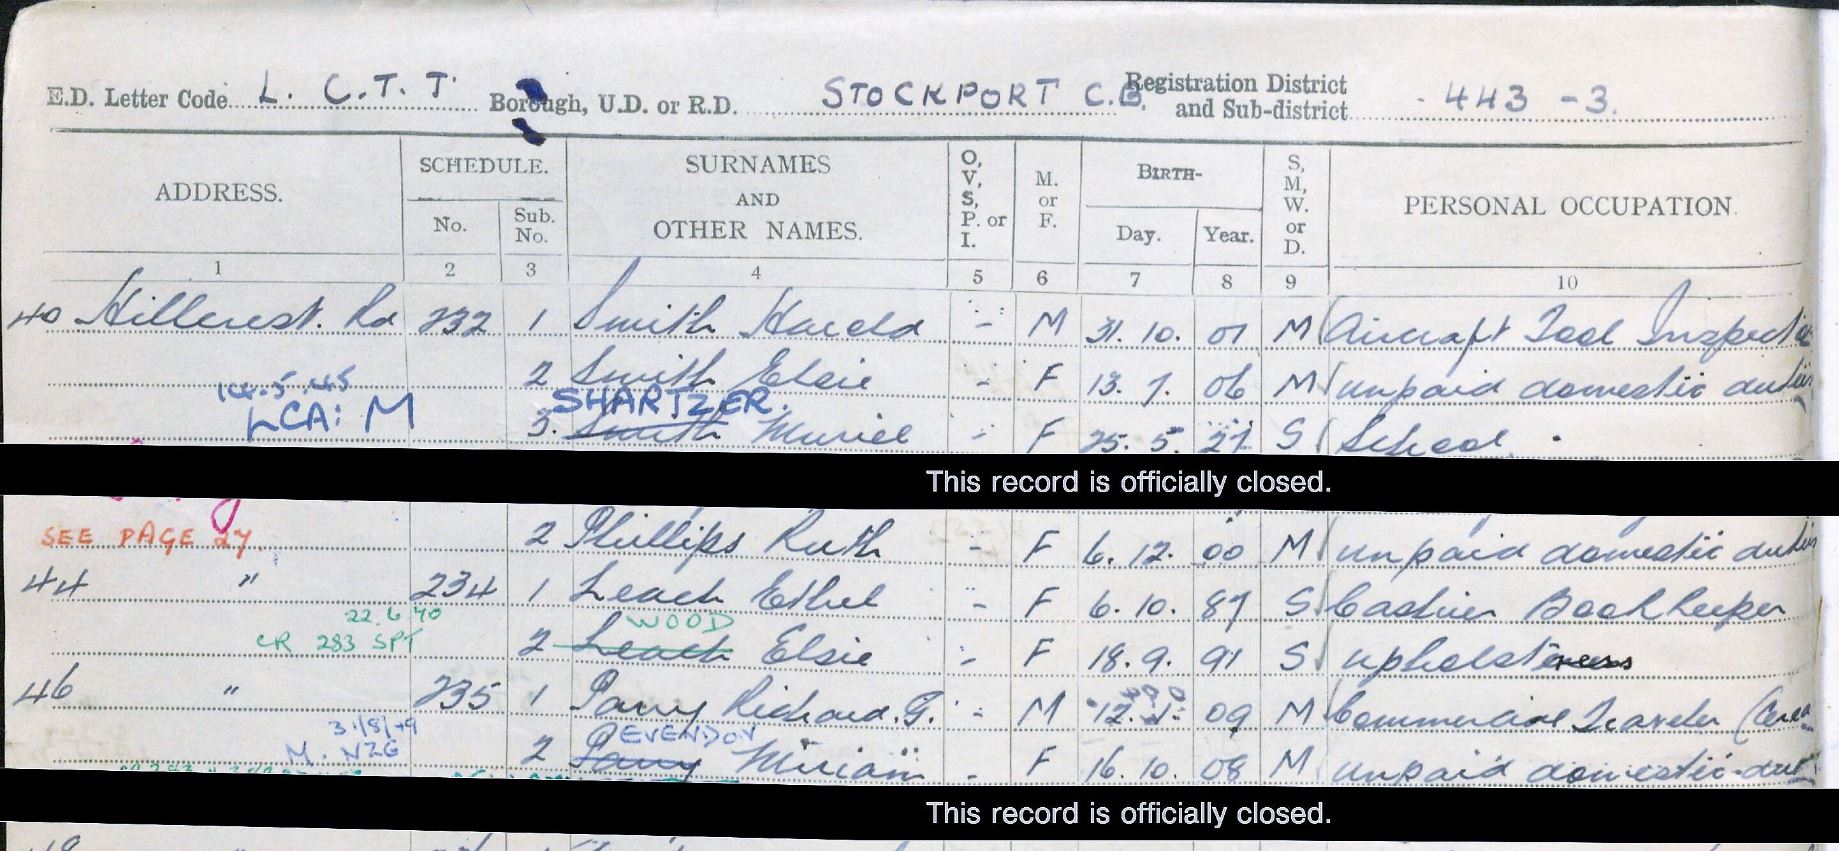 E.D. Letter Code L. C. T. T. Borough, U.D. or R.D. STOCKPORT C.B. Registration District and Sub-district 443 - 3.
ADDRESS. SCHEDULE. No. Sub. No. SURNAMES AND OTHER NAMES. O, V, S, P. or I. M. or F. BIRTH- Day. Year. S, M, W. or D. PERSONAL OCCUPATION.
1 2 3 4 5 6 7 8 9 10
40 Hillcrest. Rd 232 1 Smith Harold - M 31. 10. 07 M Aircraft Tool
2 Smith Elsie - F 13. 7. 06 M unpaid domestic
14.5.45 SHARTZER.
LCA: M 3. Smith Muriel - F 25. 5. 27 S School .
This record is officially closed.
SEE PAGE 27. 2 Phillips Ruth - F 6. 12. 00 M unpaid domestic
44 " 234 1 Leach Ethel - F 6. 10. 87 S Cashier Book Keeper
22.6.40 WOOD
CR 283 SPT 2 Leach Elsie - F 18. 9. 91 S upholsteress
46 " 235 1 Parry Richard. G. - M 12. 09 M Commercial
31/8/49
M. NZG 2 Parry Miriam - F 16. 10. 08 M unpaid domestic
This record is officially closed.